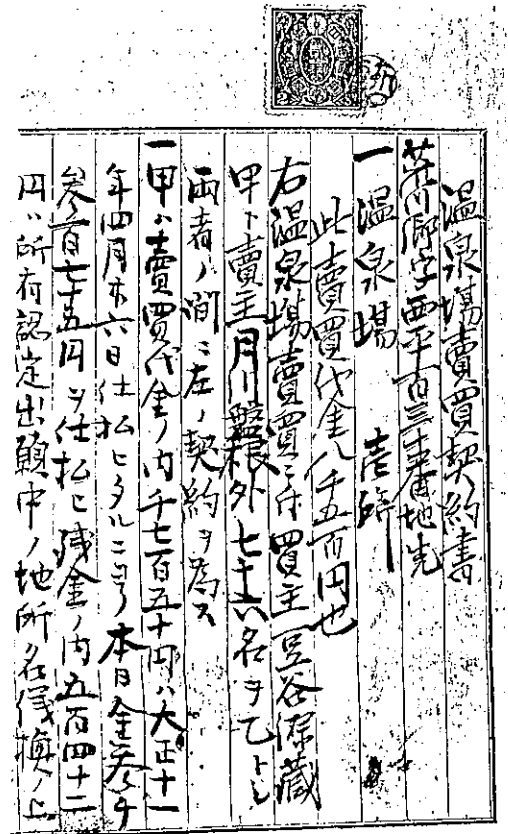 温泉場賣買契約書
芦川郷字西平百三十五番地先
一温泉場　壱ヶ所
此賣買代金八千五百円也
右温泉場賣買ニ付買主豆谷深蔵
甲ト賣主月川盤根外七十六名ヲ乙トシ
両者ノ間ニ左ノ契約ヲ為ス
一甲ハ賣買代金ノ内千七百五十円ハ大正十一
年四月廿六日仕払ヒタルニヨリ本日金参千
参百七十五円ヲ仕払ヒ残金ノ内五百四十二
円ハ所有認定出願中ノ地所名儀換ノ上